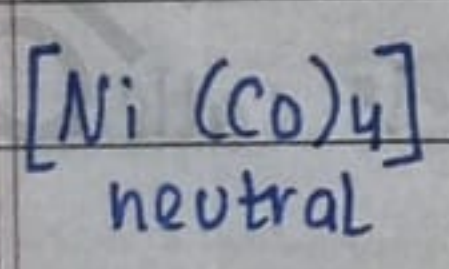 [Ni (Co)4]
neutral